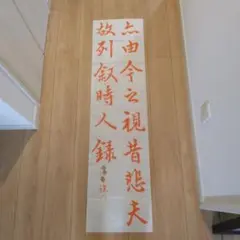 亦由今之視昔悲夫
故列叙時人錄